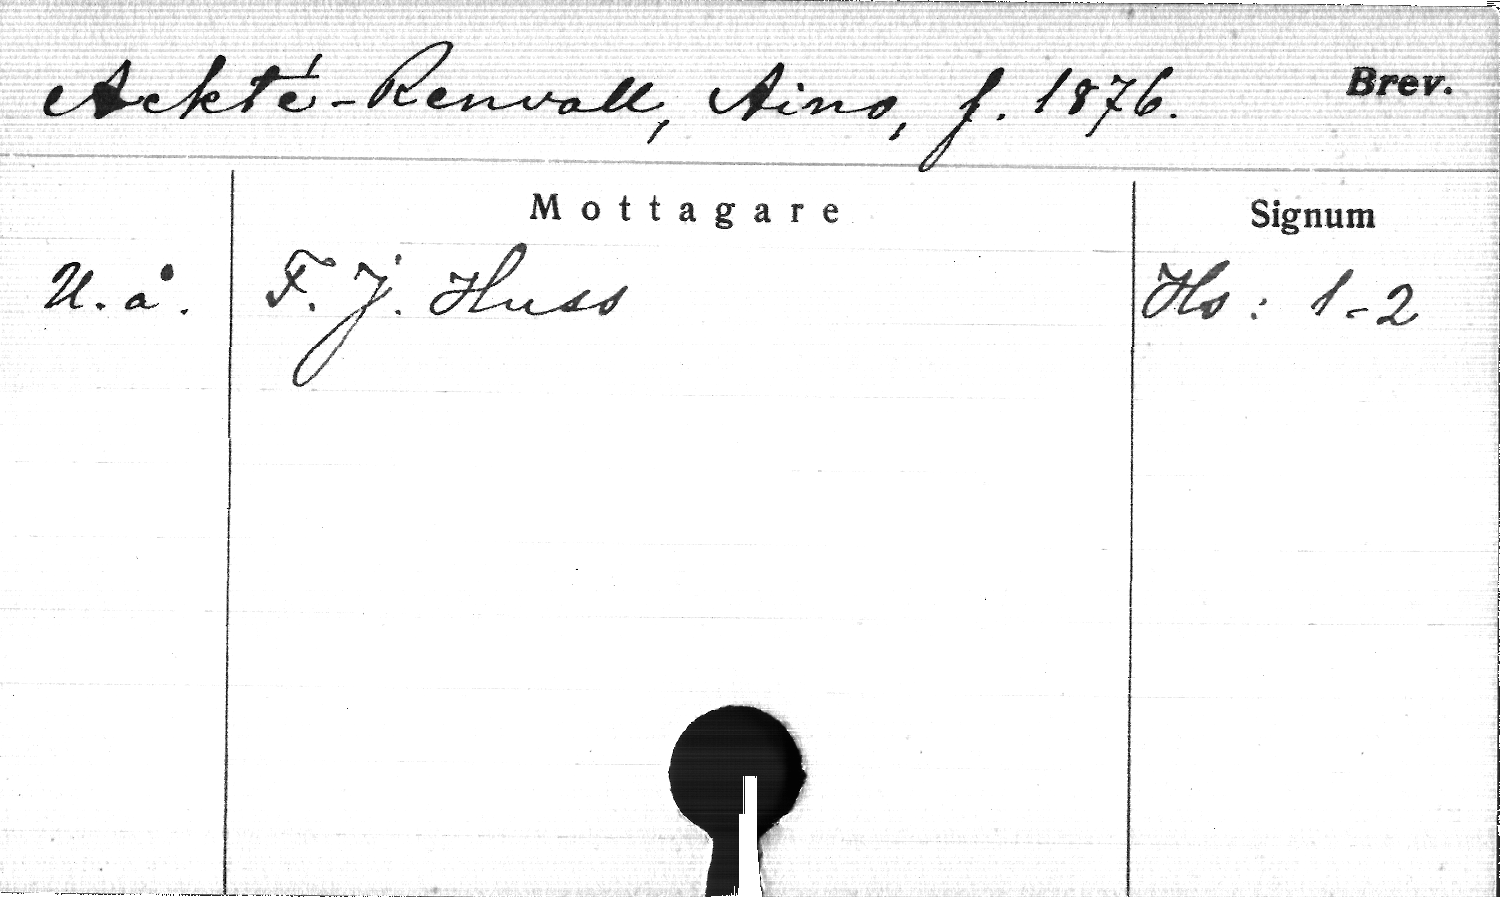 Ackté-Renvall, Aino, f. 1876. Brev.
Mottagare Signum
U. å. F. J. Huss Hs: 1-2